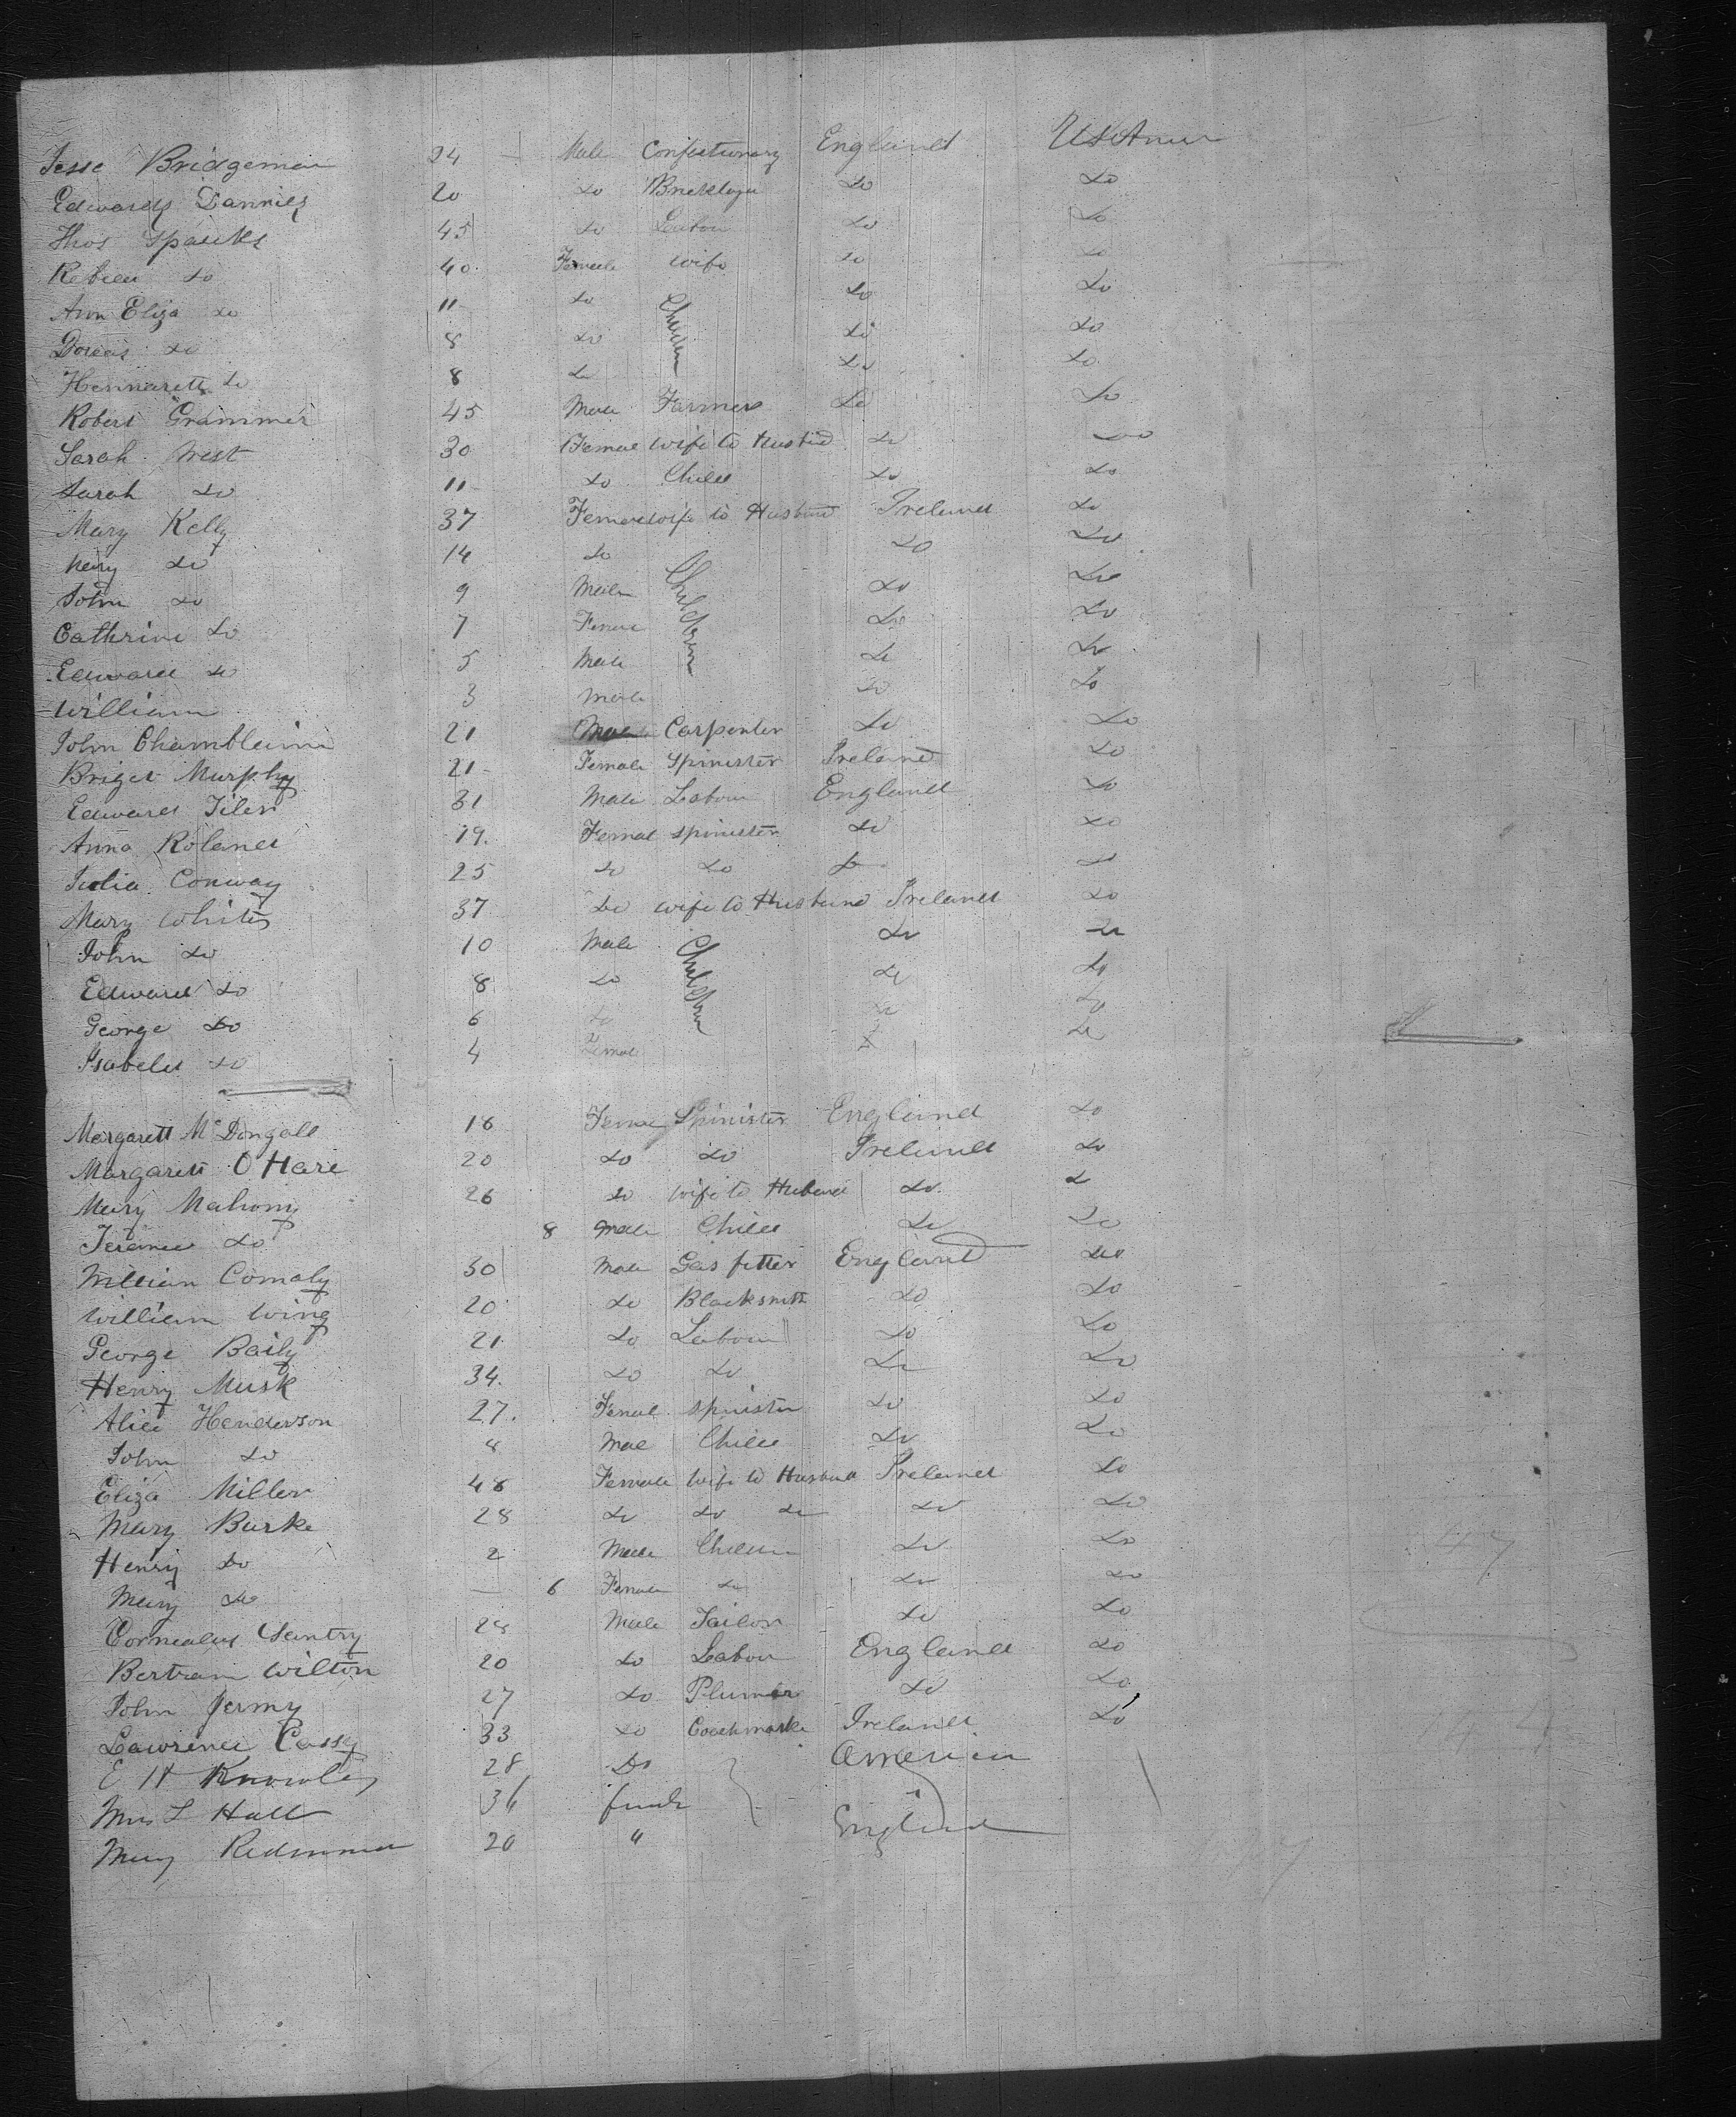 Jesse Bridgeman 24 Male Confectionary England US Amer
Edward Dannies 20 Do Bricklayer Do Do
Thos Sparks 45 Do Labour Do Do
Rebeca Do 40 Female Wife Do Do
Ann Eliza Do 11 Do Children Do Do
Dorcas Do 8 Do Do Do
Hennarett Do 8 Do Do Do
Robert Grammer 45 Male Farmer Do Do
Sarah West 30 Female Wife to Husbnd Do Do
Sarah Do 11 Do Child Do Do
Mary Kelly 37 Female Wife to Husband Ireland Do
Mary Do 14 Do Children Do Do
John Do 9 Male Do Do
Cathrine Do 7 Female Do Do
Edward Do 5 Male Do Do
William 3 Male Do Do
John Chamblain 21 Male Carpenter Do Do
Briget Murphy 21 Female Spinister Ireland Do
Edward Tiler 31 Male Labour England Do
Anna Roland 19 Femal Spinister Do Do
Julia Conway 25 Do Do Do Do
Mary White 37 Do Wife to Husband Ireland Do
John Do 10 Male Children Do Do
Edward Do 8 Do Do Do
George Do 6 Do Do Do
Isabella Do 4 Femal Do Do
Margarett McDongall 18 Femal Spinister England Do
Margarett O Hare 20 Do Do Ireland Do
Mary Mahony 26 Do Wife to Husband Do Do
Terance Do 8 Male Child Do Do
William Comaly 30 Male Gas fitter England Do
William Wing 20 Do Blacksmith Do Do
George Baily 21 Do Labour Do Do
Henry Musk 34 Do Do Do Do
Alice Henderson 27 Femal Spinister Do Do
John Do 8 Male Child Do Do
Eliza Miller 48 Female Wife to Husband Ireland Do
Mary Burke 28 Do Do Do Do Do
Henry Do 2 Male Children Do Do
Mary Do — 6 Female Do Do Do
Cornealus Santry 28 Male Tailor Do Do
Bertram Wilton 20 Do Labour England Do
John Jermy 27 Do Plumber Do Do
Lawrence Cassy 33 Do Coachmaker Ireland Do
E H Knowles 28 Do America
Mrs L Hall 36 female
Mary 20 " England